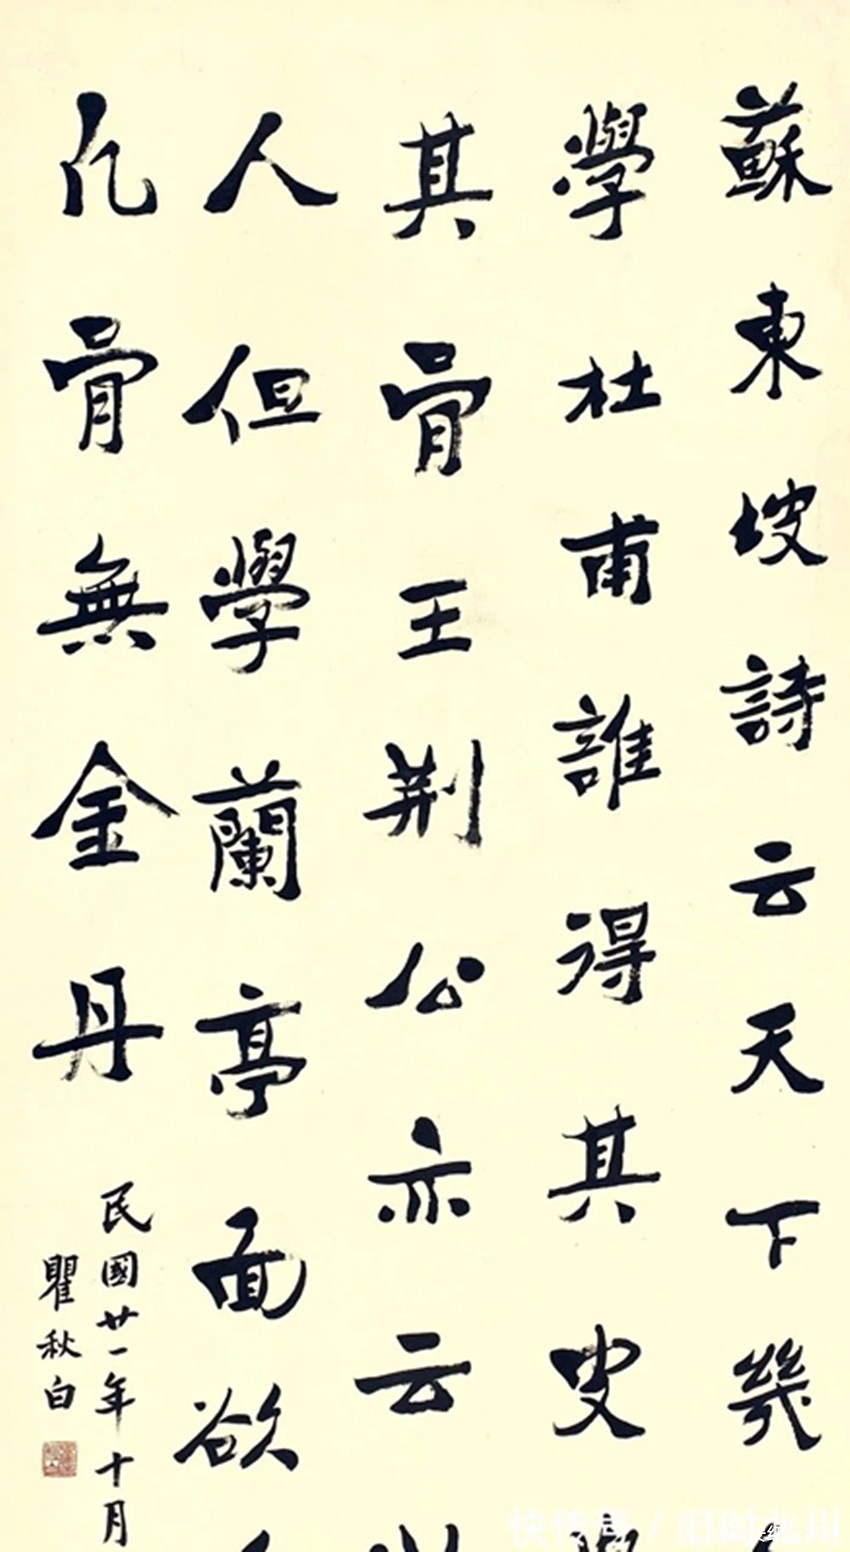 蘇東坡詩云天下幾
學杜甫誰得其皮
其骨王荊公亦云
人但學蘭亭面欲
凡骨無金丹
民國廿一年十月
瞿秋白
快传号 / 旧时北川